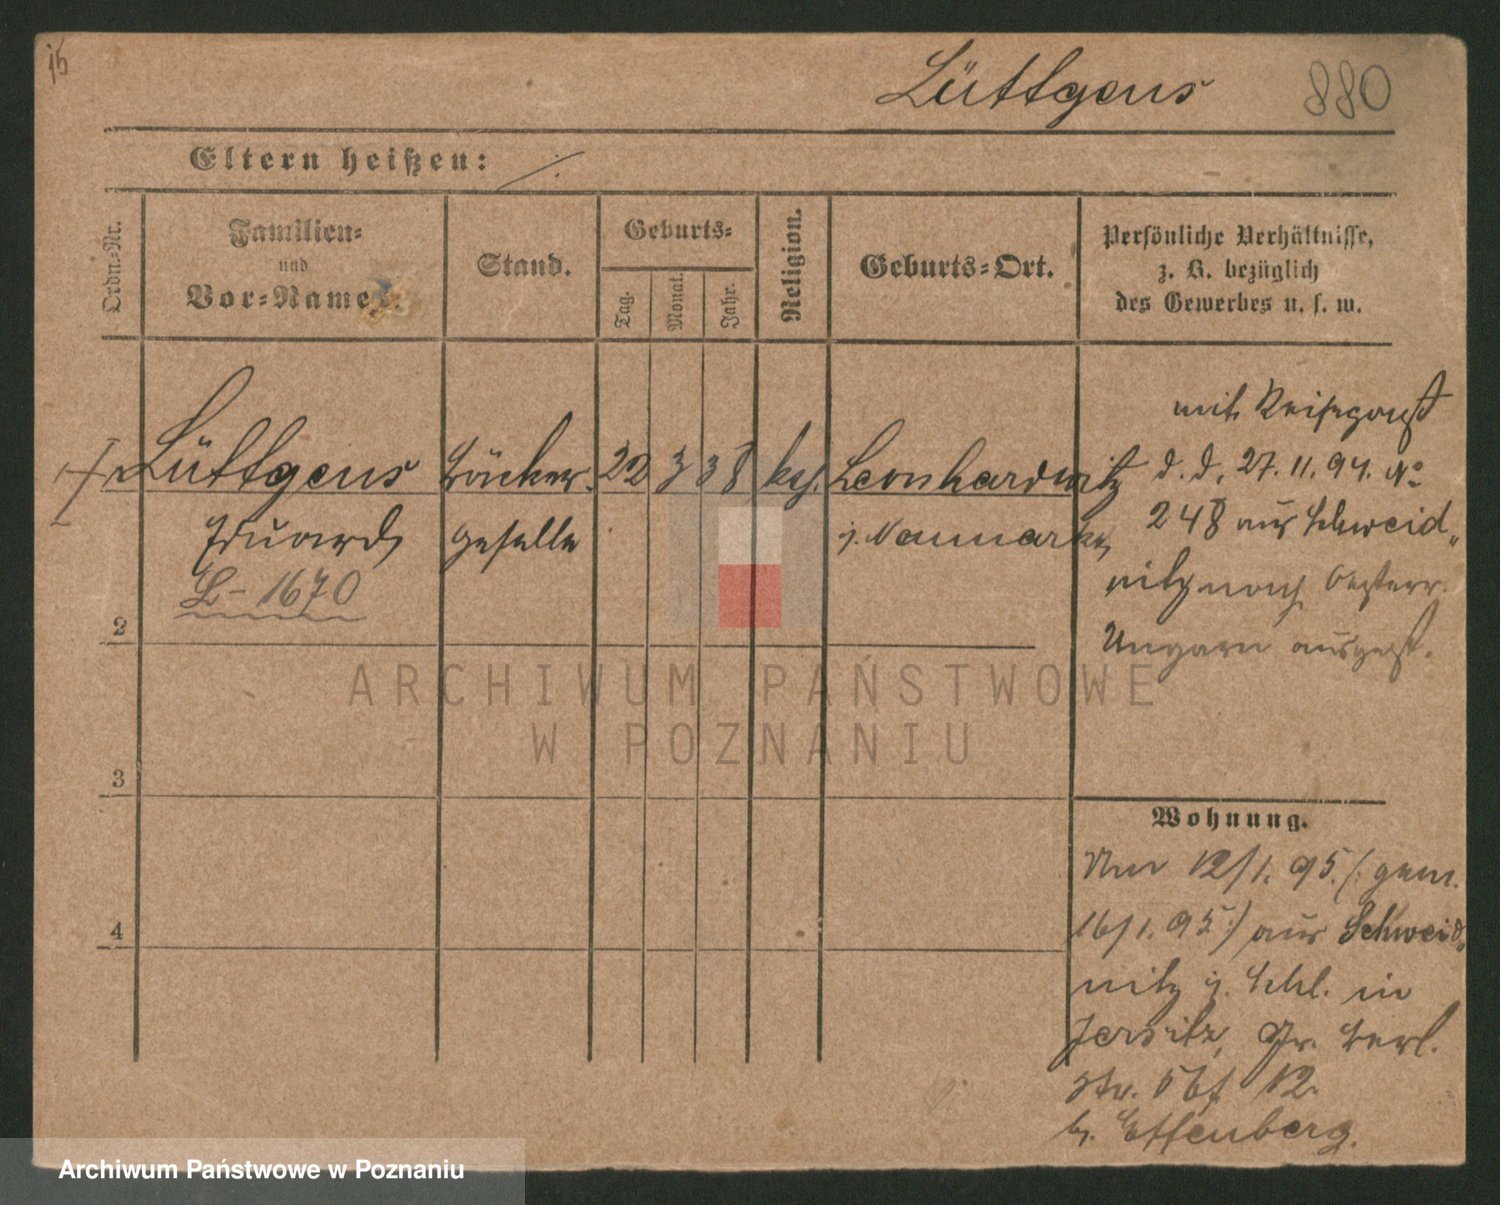 16
Lüttgens 880
Eltern heißen: ./.
Ordn.-Nr.
Familien-
und
Vor-Name
Stand.
Geburts-
Tag.
Monat.
Jahr.
Religion.
Geburts-Ort.
Persönliche Verhältnisse,
z. B. bezüglich
des Gewerbes u. s. w.
Lüttgens
Eduard
L-1670
Bäcker-
geselle
22 3 38
Leonhardwitz
mit Reisepaß
d. d. 27.11.94. No
248 aus Schweid„
nitz nach Oesterr.
Ungarn ausgest.
2
3
4
Wohnung.
12/1. 95. (: gem.
16/1. 95 :) aus Schweid„
nitz i. Schl. in
Jersitz, Gr. Berl.
str. 12.
b. Effenberg.
ARCHIWUM PAŃSTWOWE
W POZNANIU
Archiwum Państwowe w Poznaniu